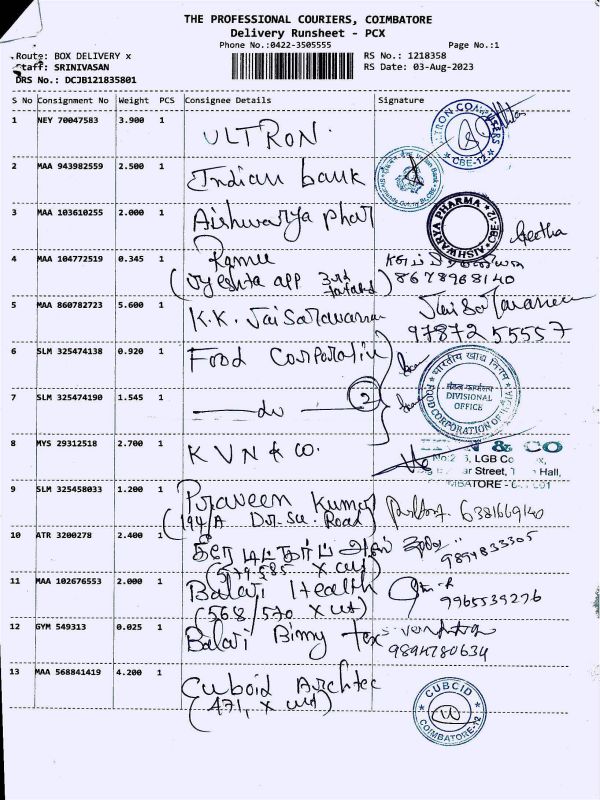 THE PROFESSIONAL COURIERS, COIMBATORE
Delivery Runsheet - PCX
Phone No.:0422-3505555 Page No.:1
Route: BOX DELIVERY x RS No.: 1218358
Staff: SRINIVASAN RS Date: 03-Aug-2023
DRS No.: DCJB121835801
S No Consignment No Weight PCS Consignee Details Signature
1 NEY 70047583 3.900 1 ULTRON.
CBE-12
2 MAA 943982559 2.500 1 Indian bank
3 MAA 103610255 2.000 1 Aishwarya phar
AISHWARYA PHARMA CBE-12
Geetha
4 MAA 104772519 0.345 1 Ramu
(Jyeshta app 3rd
8678968140
5 MAA 860782723 5.600 1 K.K. Jaisaravanna
97872 55557
6 SLM 325474138 0.920 1 Food Corporatin
भारतीय खाद्य निगम
DIVISIONAL
OFFICE
FOOD CORPORATION OF
7 SLM 325474190 1.545 1 — do — 2
8 MYS 29312518 2.700 1 KVN & CO.
& CO
LGB
Street, Hall,
9 SLM 325458033 1.200 1 Praveen Kumar
(194/A Dr. Su. Road) 6381669140
10 ATR 3200278 2.400 1
(579.585 x cut) 9894833305
11 MAA 102676553 2.000 1 Balaji Health
(568/570 x cut) 9965539276
12 GYM 549313 0.025 1 Balaji Binny tex
9894780634
13 MAA 568841419 4.200 1 Cuboid Archtec
(471, x cut)
CUBCID
COIMBATORE-12